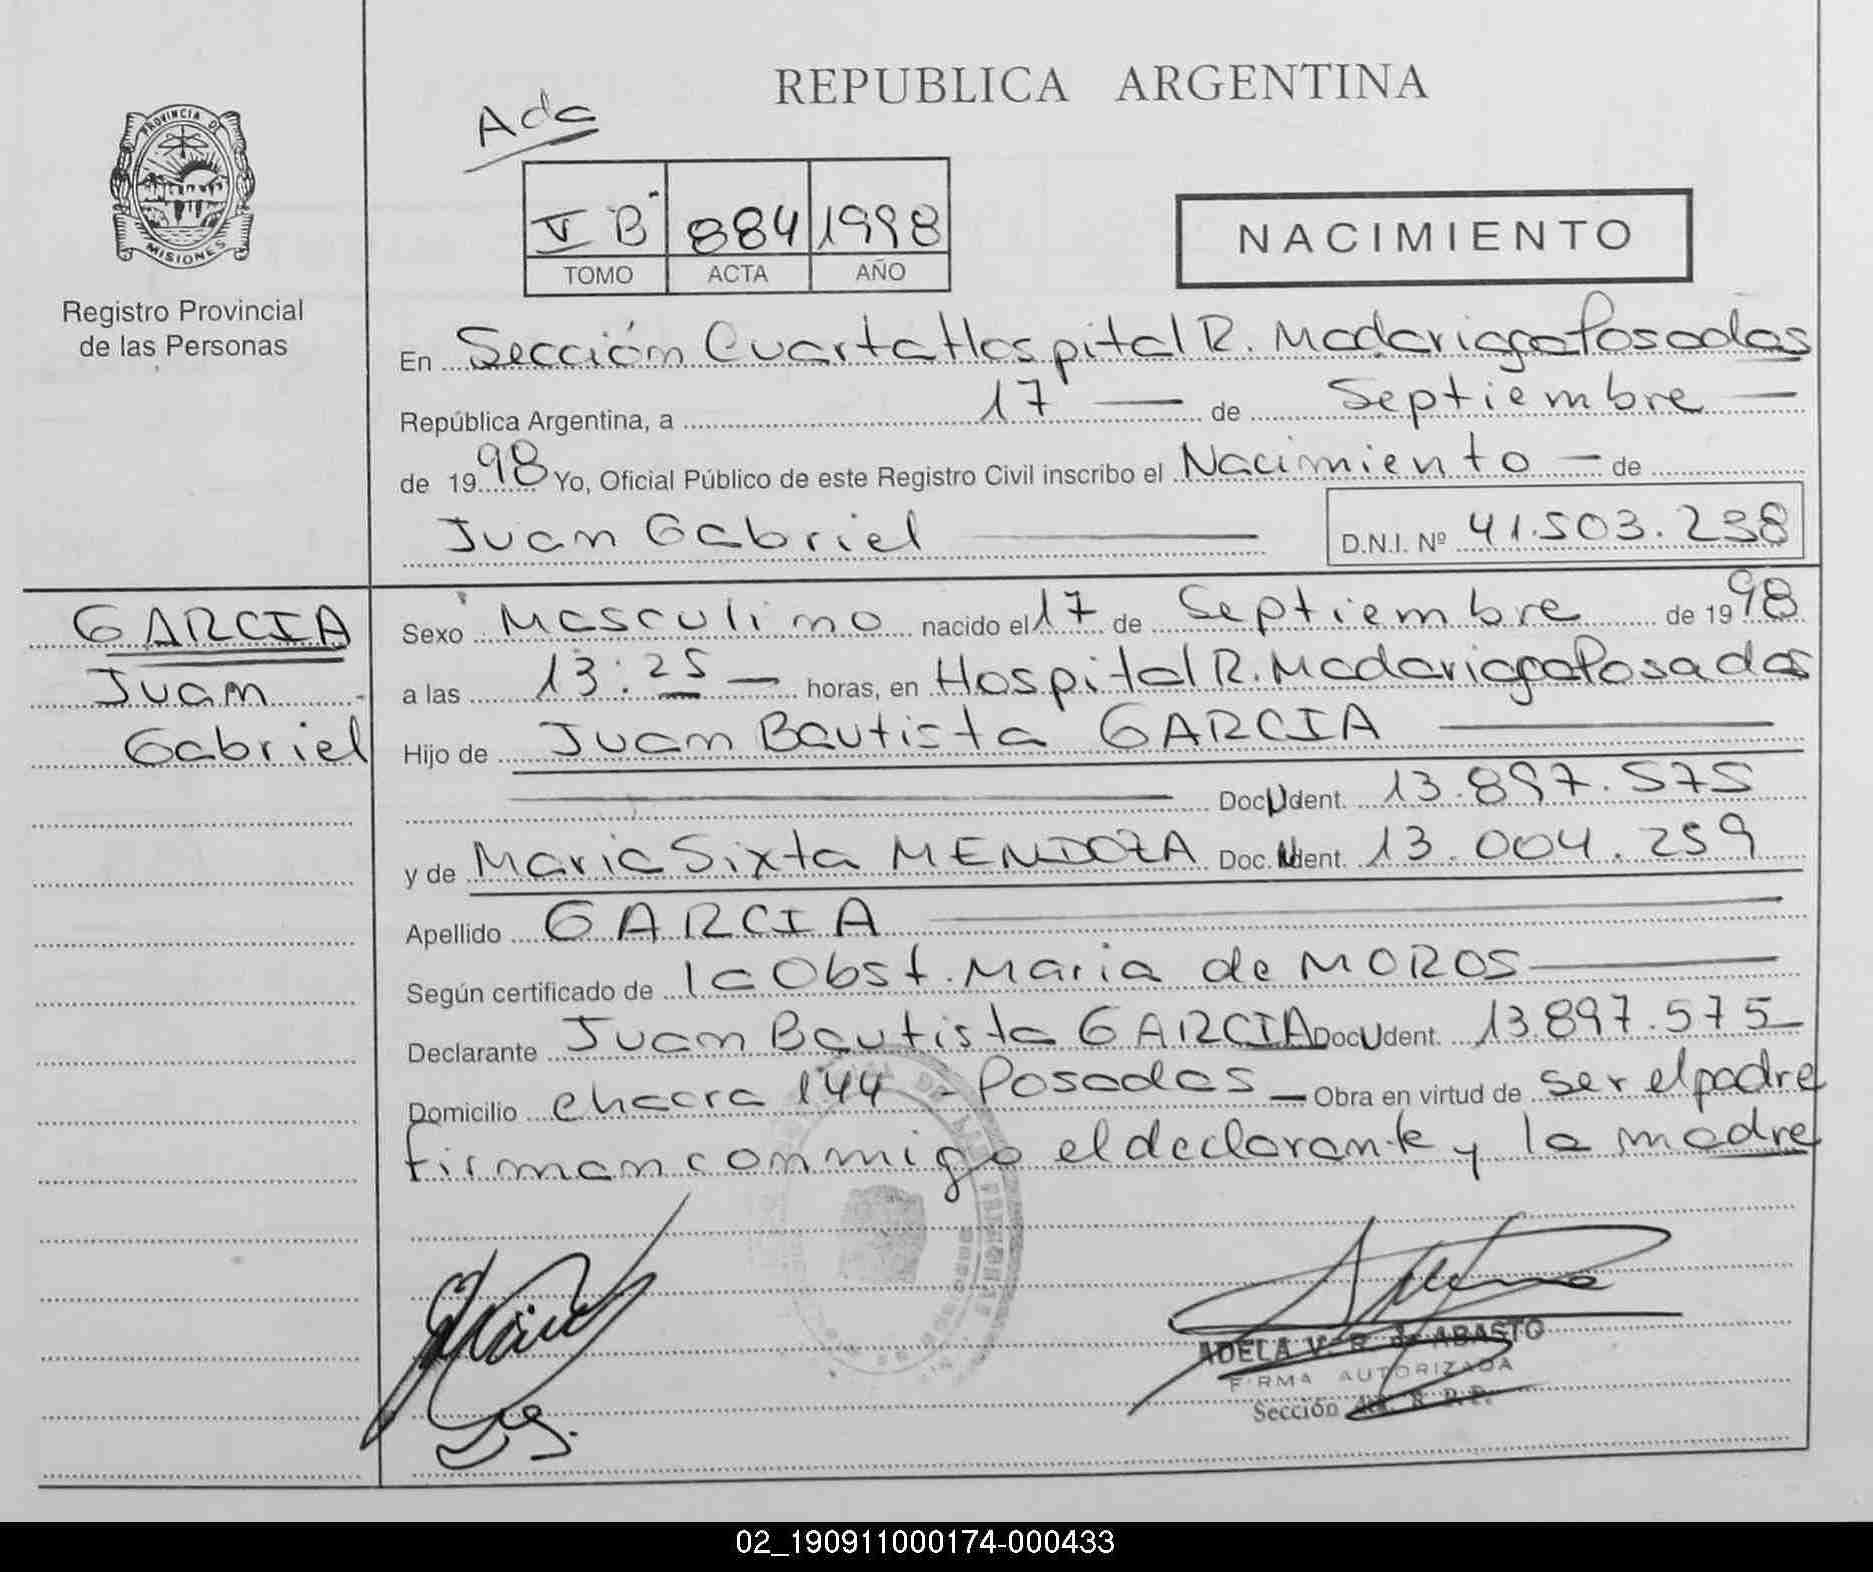 REPUBLICA ARGENTINA
Ada
PROVINCIA DE
MISIONES
Registro Provincial
de las Personas
V "B" 884 1998
TOMO ACTA AÑO
NACIMIENTO
En Sección Cuarta Hospital R. Madariaga Posadas
República Argentina, a 17 — de Septiembre —
de 1998 Yo, Oficial Público de este Registro Civil inscribo el Nacimiento — de
Juan Gabriel — D.N.I. Nº 41.503.238
GARCIA
Juan
Gabriel
Sexo Masculino nacido el 17 de Septiembre de 1998
a las 13:25 — horas, en Hospital R. Madariaga Posadas
Hijo de Juan Bautista GARCIA —
— Doc. U dent. 13.897.575
y de Maria Sixta MENDOZA Doc. N dent. 13.004.259
Apellido GARCIA —
Según certificado de la Obst. Maria de MOROS —
Declarante Juan Bautista GARCIA Doc U dent. 13.897.575
Domicilio chacra 144 - Posadas — Obra en virtud de ser el padre
firman conmigo el declarante y la madre
ADELA V. R. de ABASTO
FIRMA AUTORIZADA
Sección
02_190911000174-000433